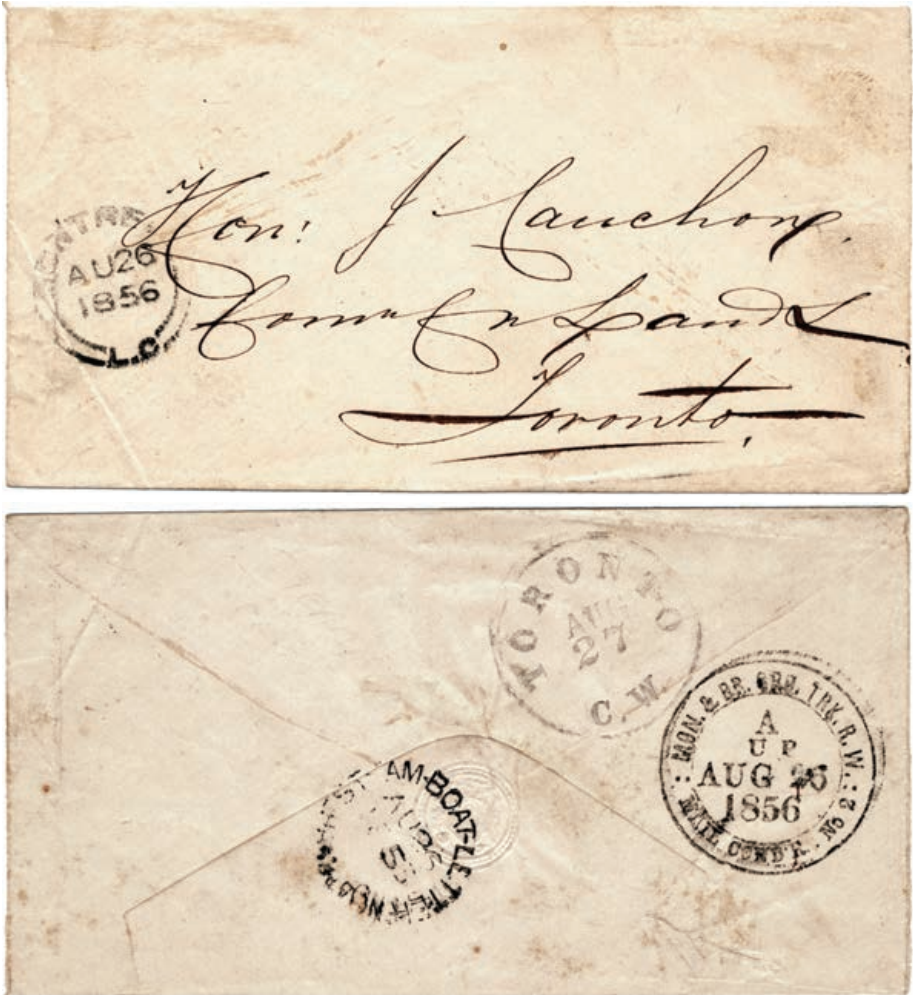 MONTRE
AU26
1856
L.C
Hon: J Cauchon,
Comr Cn Lands
Toronto.
TORONTO
AUG
27
C.W.
MON. & BR. GRD. TRK. R. W.
A
UP
AUG 26
1856
MAIL COND'R. No 2
AM-BOAT-LETTER
AU26